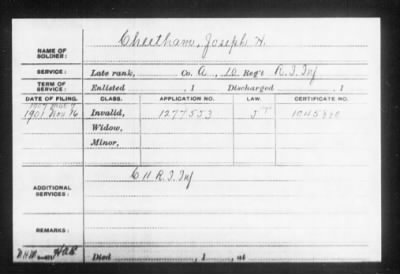 NAME OF SOLDIER: Cheetham, Joseph H.
SERVICE: Late rank, Co. A, 10 Reg't R.I. Inf
TERM OF SERVICE: Enlisted , 1 Discharged , 1
DATE OF FILING. CLASS. APPLICATION NO. LAW. CERTIFICATE NO.
1901 Nov 16 Invalid, 1277553 1045880
Widow,
Minor,
ADDITIONAL SERVICES: C H R.I. Inf
REMARKS:
Died , 1 , at